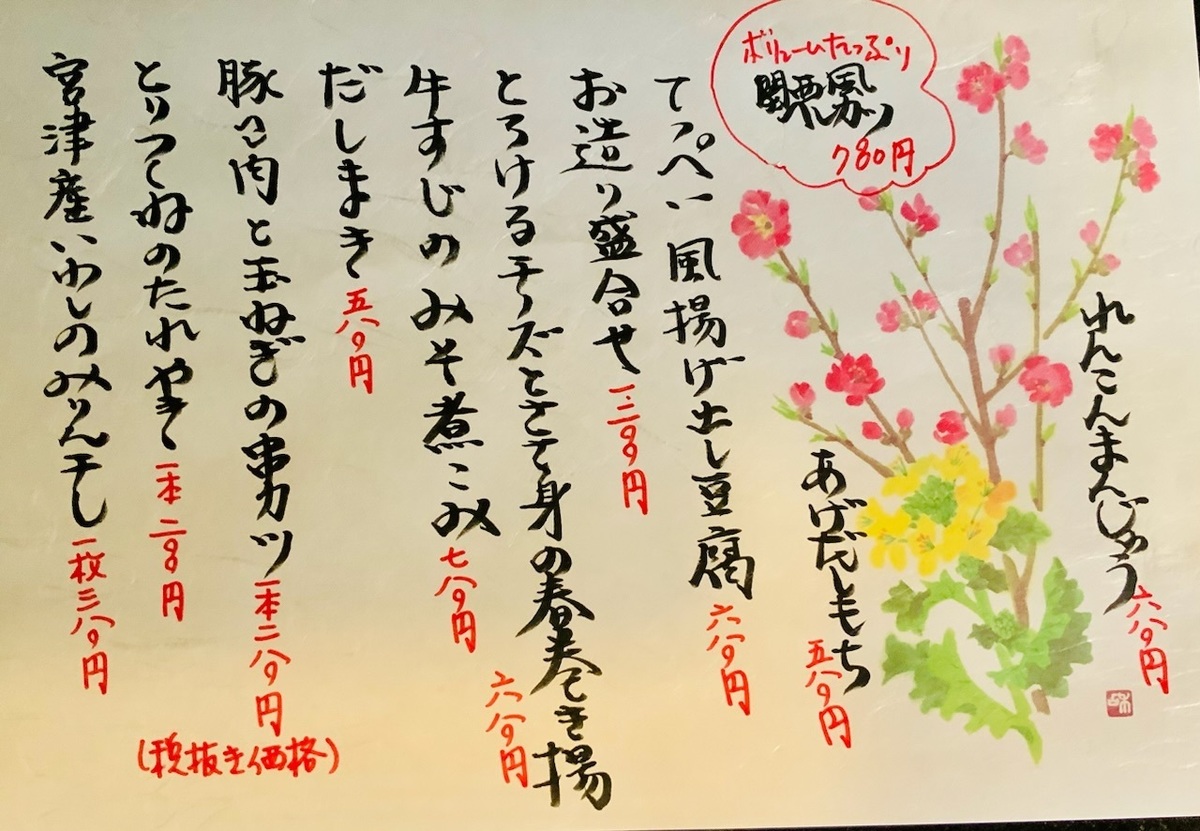 れんこんまんじゅう 六八〇円
あげだしもち 五八〇円
ボリュームたっぷり
関西風
780円
てっぺい風揚げ出し豆腐 六八〇円
お造り盛合せ
とろけるチーズとささ身の春巻き揚 六八〇円
牛すじのみそ煮こみ 七八〇円
だしまき 五八〇円
豚肉と玉ねぎの串カツ 一本二八〇円
とりつくねのたれやき 一本二〇〇円
宮津産いわしのみりん干し 一枚三八〇円
(税抜き価格)